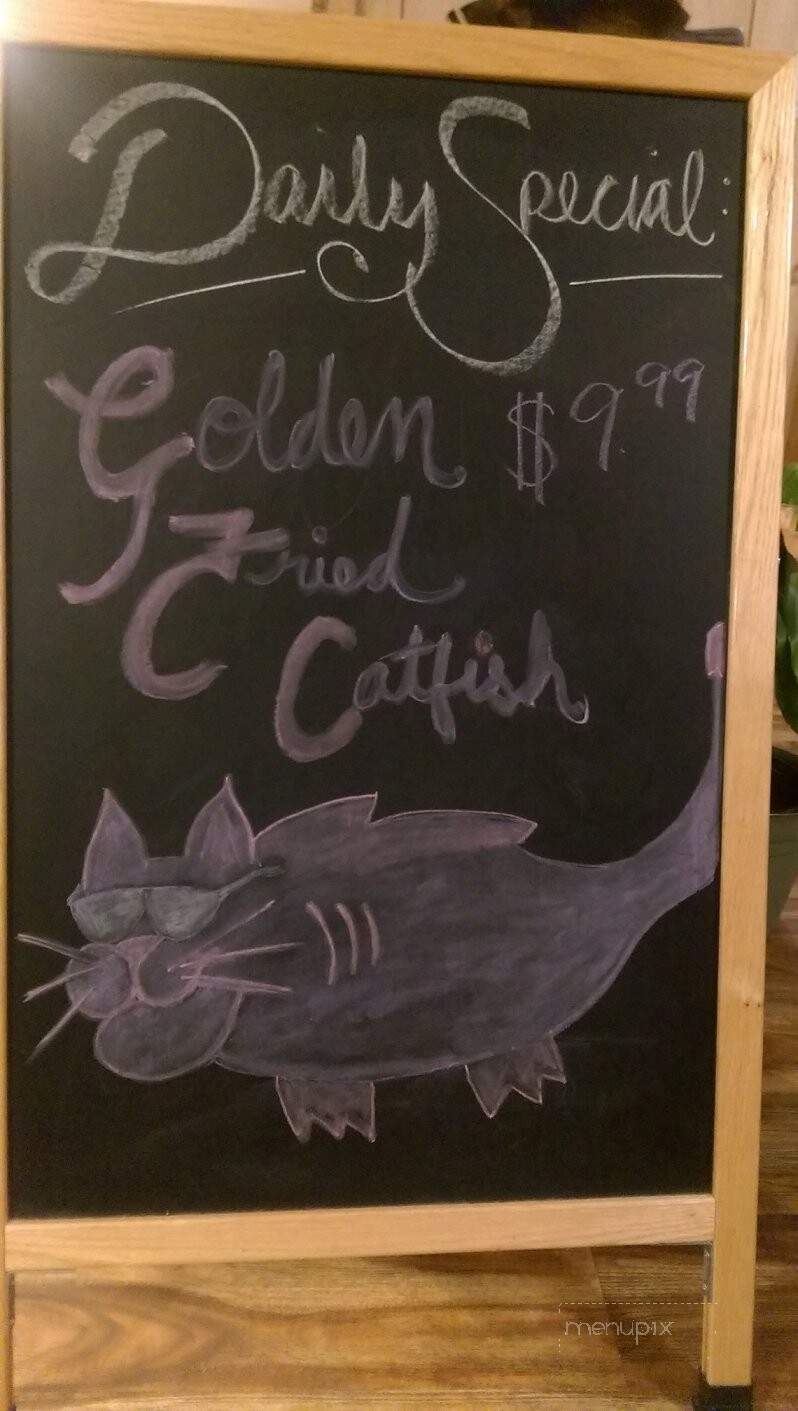 Daily Special:
Golden $9.99
Fried
Catfish
menupix